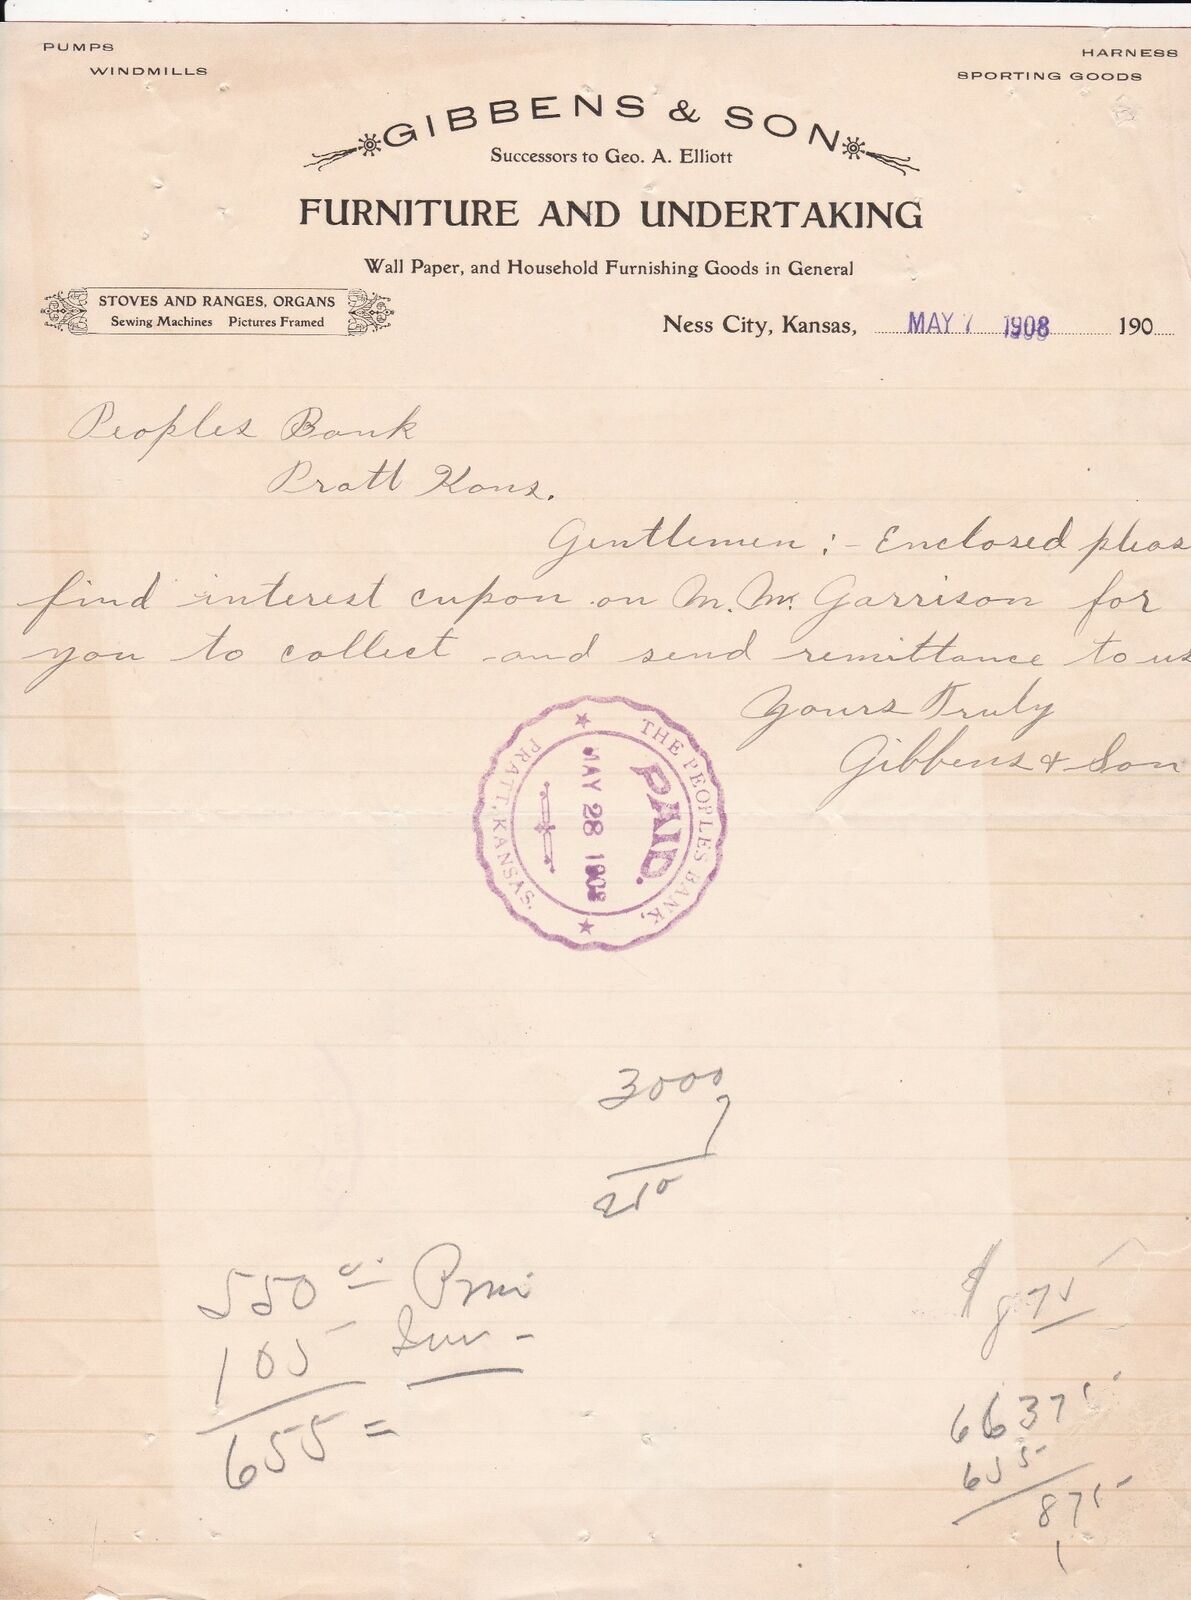 PUMPS
WINDMILLS
HARNESS
SPORTING GOODS
GIBBENS & SON
Successors to Geo. A. Elliott
FURNITURE AND UNDERTAKING
Wall Paper, and Household Furnishing Goods in General
STOVES AND RANGES, ORGANS
Sewing Machines Pictures Framed
Ness City, Kansas, MAY 7 1908 190
Peoples Bank
Pratt Kans.
Gentlemen :- Enclosed pleas
find interest cupon on M. M. Garrison for
you to collect and send remittance to us
Yours Truly
Gibbens & Son
THE PEOPLES BANK,
PAID.
MAY 28 1908
PRATT, KANSAS.
3000
7
210
550
105
655 =
$ 875
66375
655
875